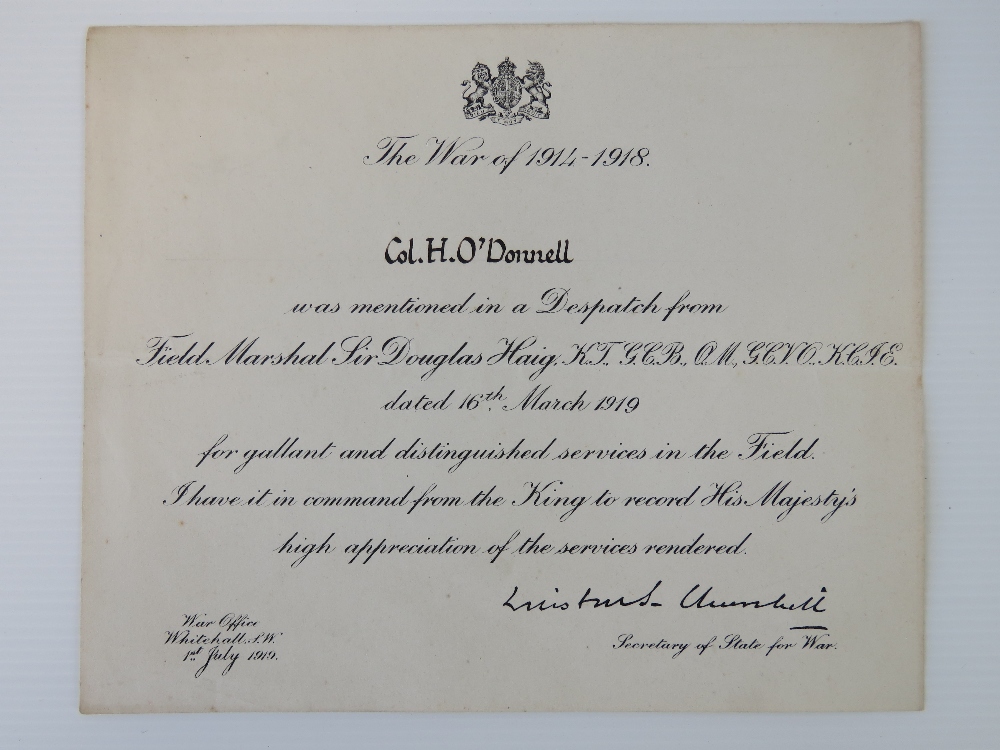 The War of 1914-1918.
Col. H. O'Donnell
was mentioned in a Despatch from
Field Marshal Sir Douglas Haig, K.T., G.C.B., O.M., G.C.V.O., K.C.I.E.
dated 16th March 1919
for gallant and distinguished services in the Field.
I have it in command from the King to record His Majesty's
high appreciation of the services rendered.
Winston S. Churchill
Secretary of State for War.
War Office
Whitehall. S.W.
1st July 1919.